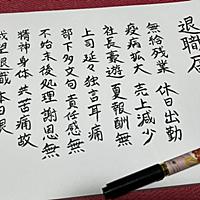 退職届
無給残業 休日出勤
疫病拡大 売上減少
社長豪遊 夏報酬無
上司延々独言耳痛
部下多文句責任感無
不始末後処理謝恩無
精神身体共苦痛故
退職